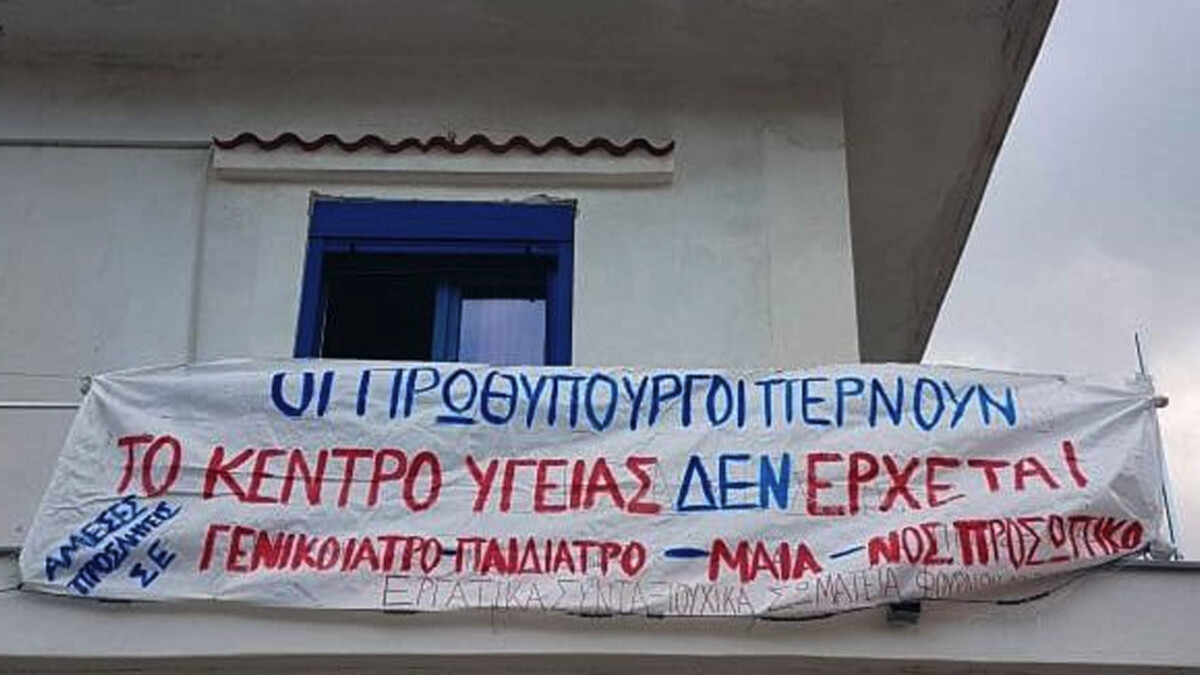 ΟΙ ΠΡΩΘΥΠΟΥΡΓΟΙ ΠΕΡΝΟΥΝ
ΤΟ ΚΕΝΤΡΟ ΥΓΕΙΑΣ ΔΕΝ ΕΡΧΕΤΑΙ
ΑΜΕΣΕΣ
ΠΡΟΣΛΗΨΕΙΣ
ΣΕ
ΓΕΝΙΚΟΙΑΤΡΟ-ΠΑΙΔΙΑΤΡΟ - ΜΑΙΑ - ΝΟΣ. ΠΡΟΣΩΠΙΚΟ
ΕΡΓΑΤΙΚΑ ΣΥΝΤΑΞΙΟΥΧΙΚΑ ΣΩΜΑΤΕΙΑ